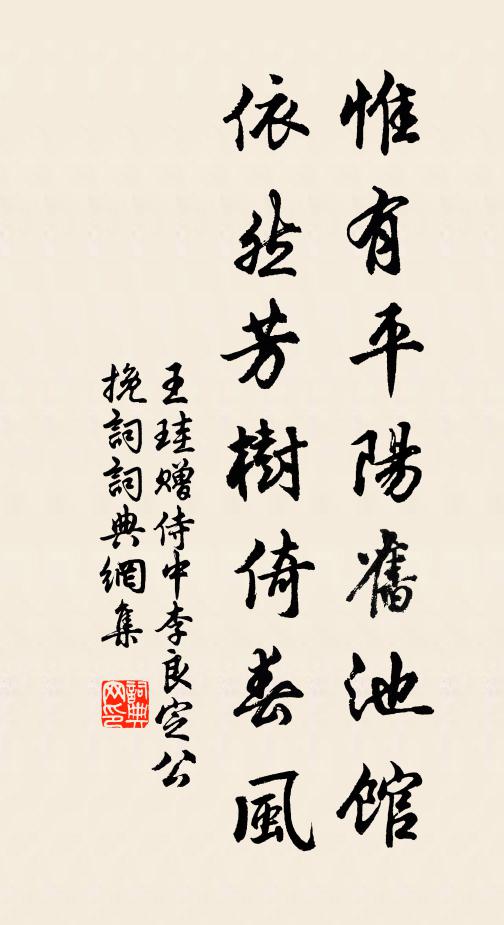 惟有平陽舊池館
依然芳樹倚春風
王珪贈侍中李良定公
挽詞詞典網集
詞典
网印